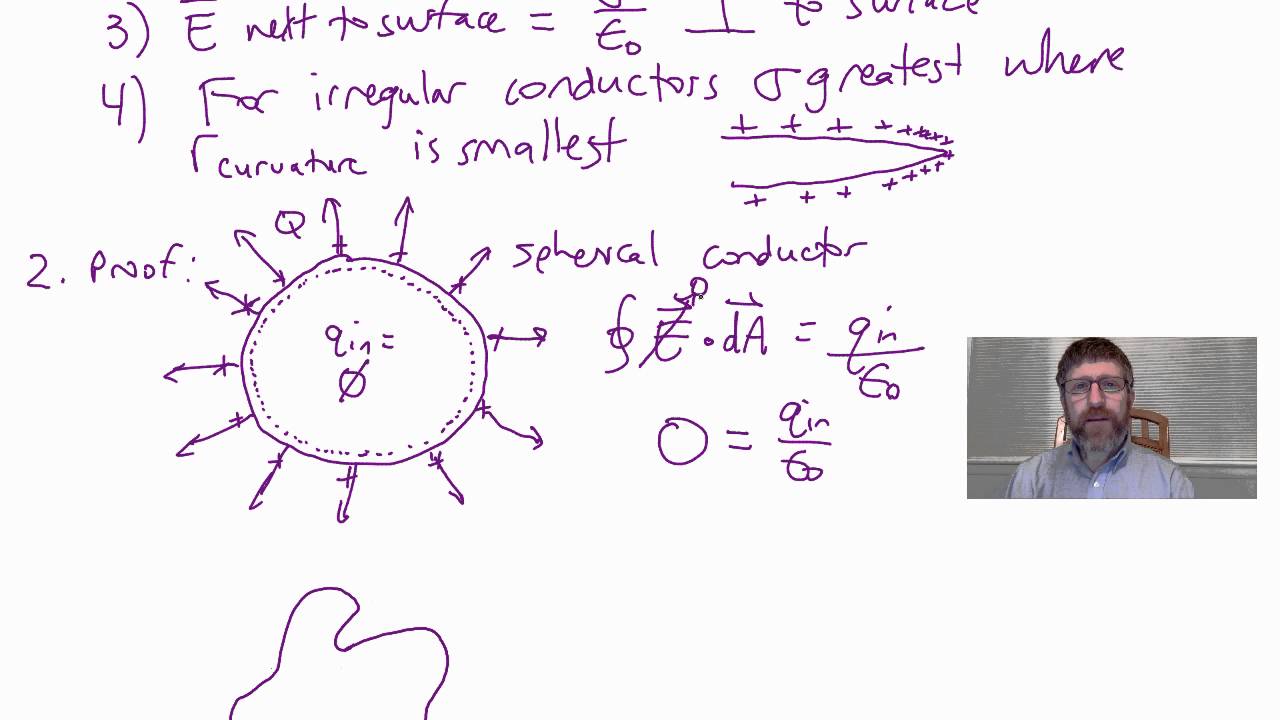 3) E⃗ next to surface = σ/ε₀ ⊥ to surface
4) For irregular conductors σ greatest where
r curvature is smallest
+ + + + + + + + +
+ + + + + + +
Q
2. Proof:
spherical conductor
q in =
∅
∮ E⃗ 0 · dA⃗ = q in / ε₀
0 = q in / ε₀